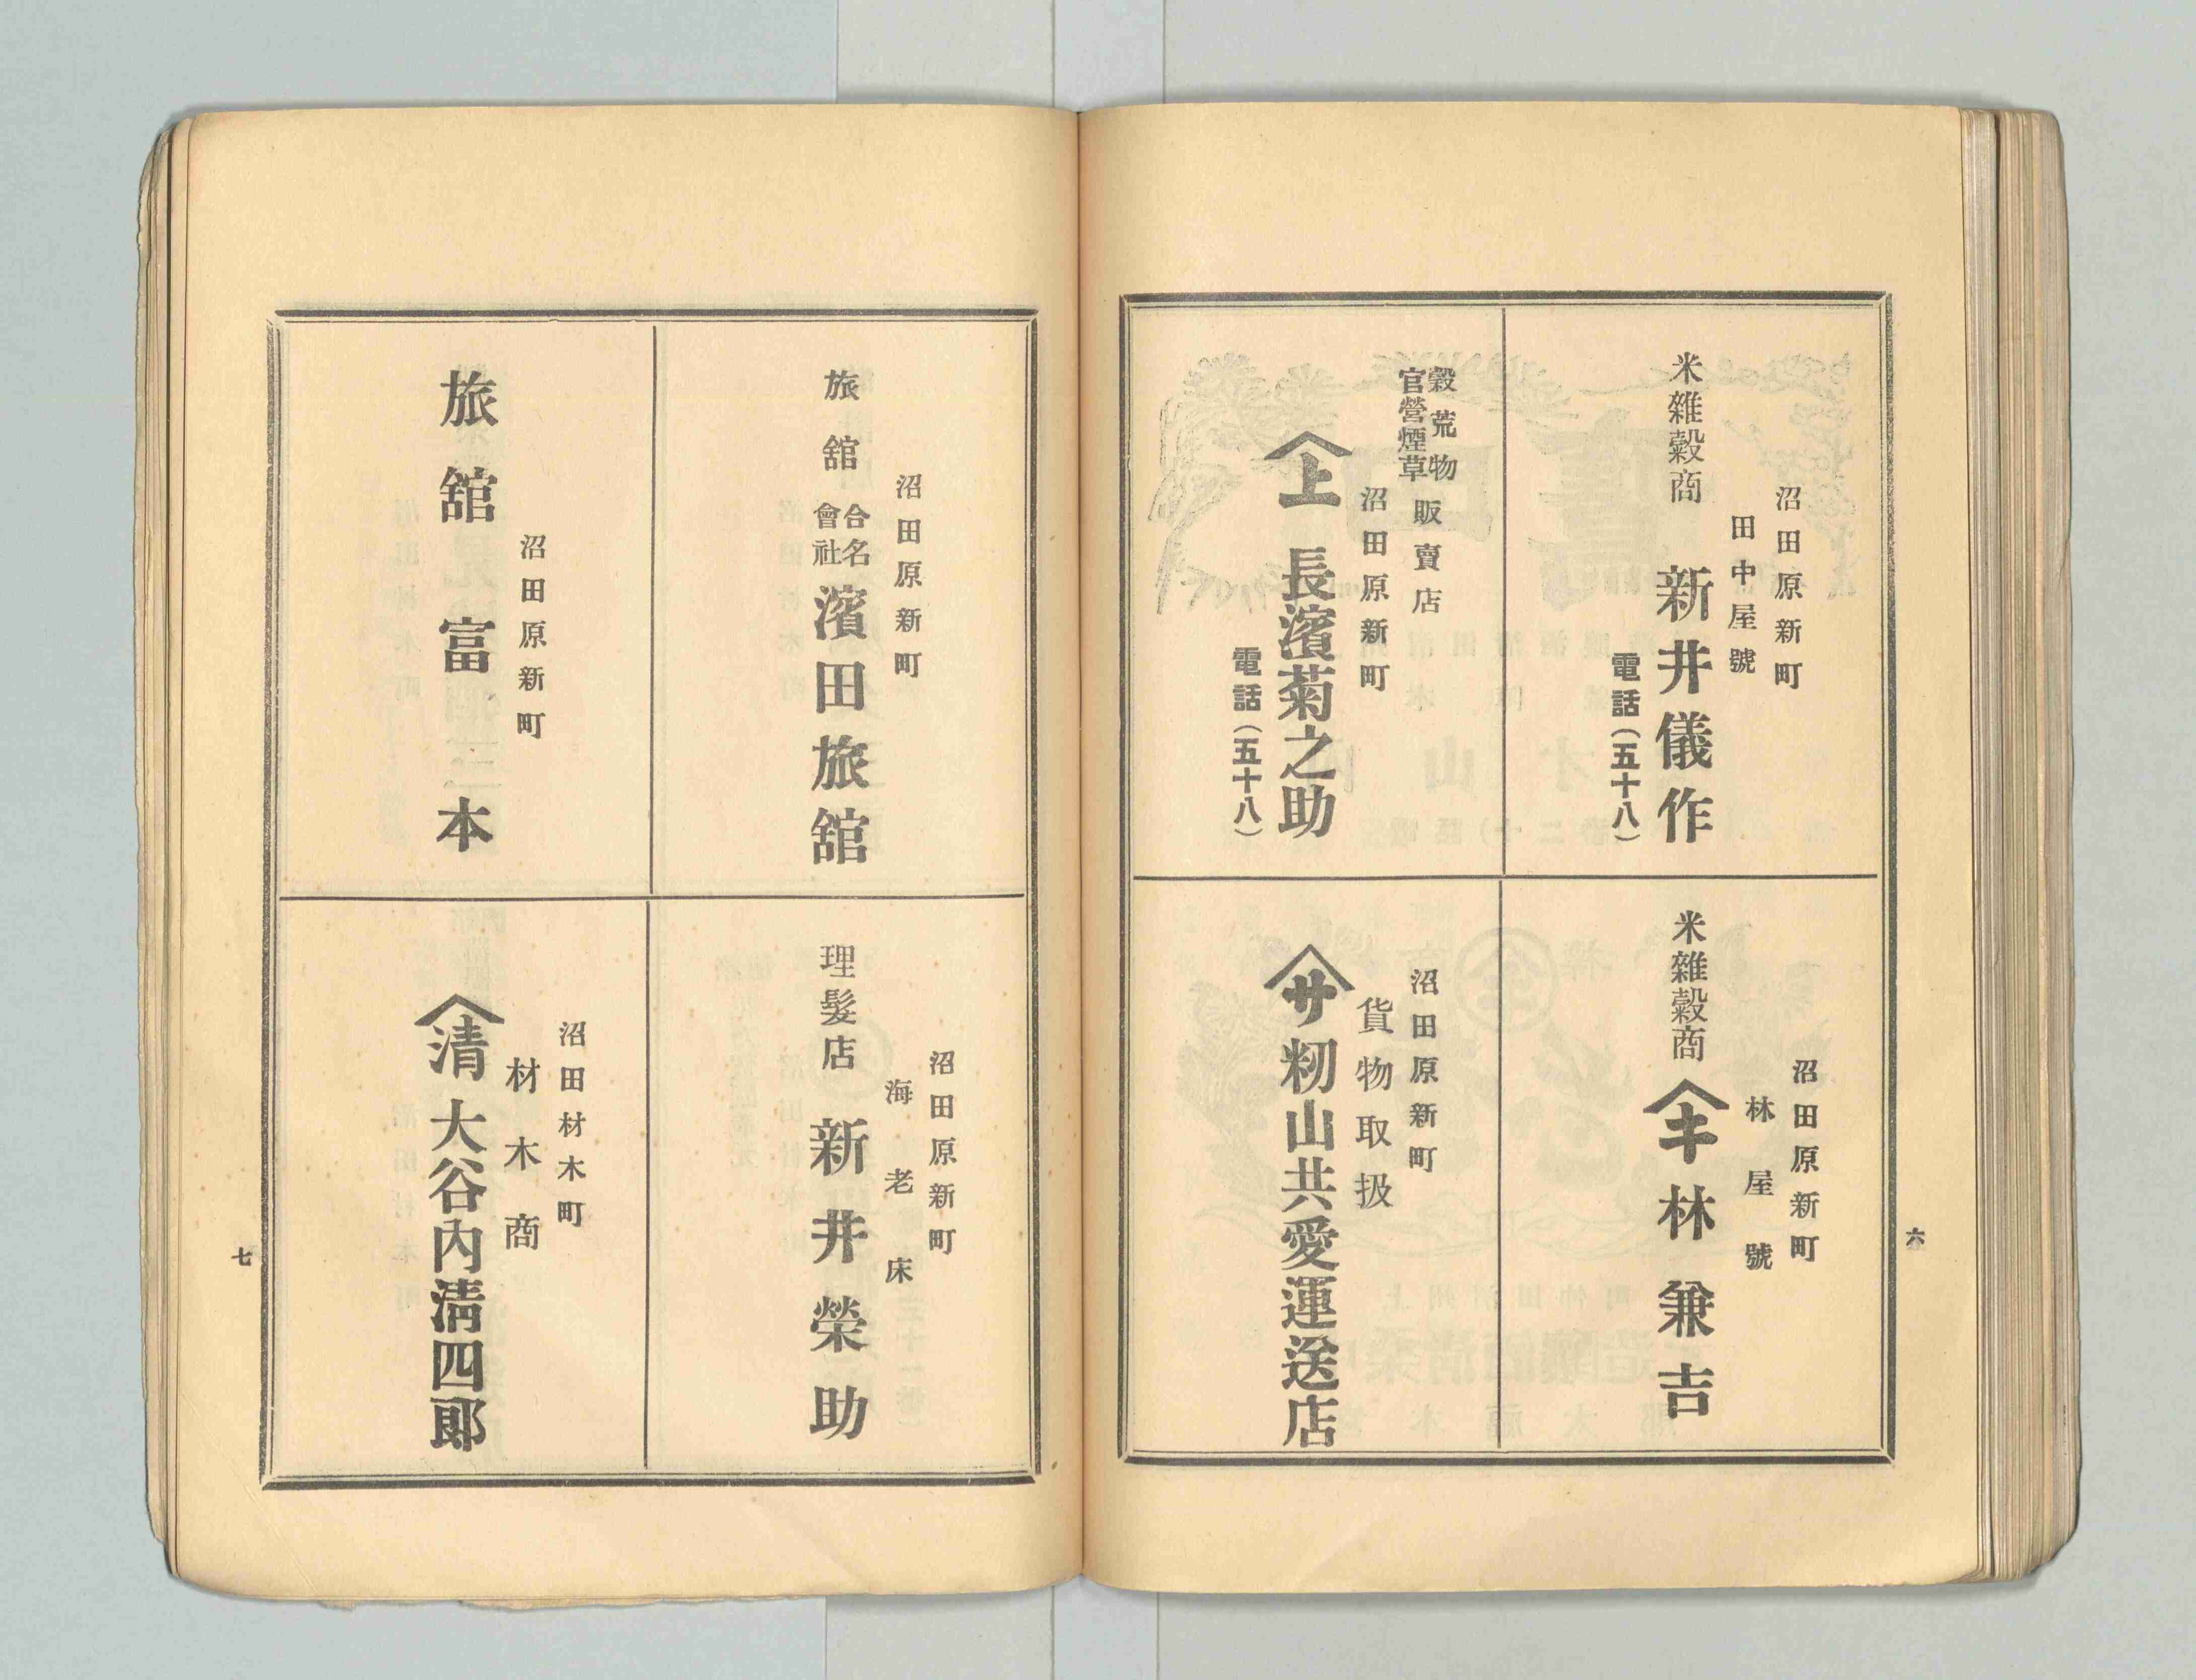 沼田原新町
田中屋號
米雜穀商 新井儀作
電話(五十八)
沼田原新町
林屋號
米雜穀商 キ 林兼吉
穀荒物
官營煙草
販賣店
沼田原新町
上 長濱菊之助
電話(五十八)
沼田原新町
貨物取扱
サ 籾山共愛運送店
六
沼田原新町
旅舘 合名會社 濱田旅舘
沼田原新町
海老床
理髮店 新井榮助
沼田原新町
旅舘富本
沼田材木町
材木商
清 大谷内淸四郞
七